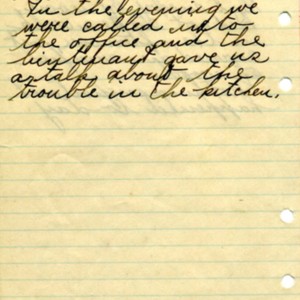 In the evening we
were called in to
the office and the
lieutenant gave us
a talk about the
trouble in the kitchen.